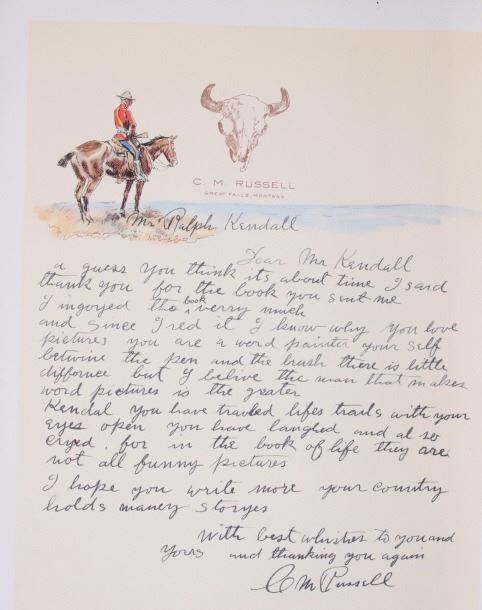 C. M. RUSSELL
GREAT FALLS, MONTANA
Mr Ralph Kendall
Dear Mr Kendall
a guess you think its about time I said
thank you for the book you sent me
I ingoyed the book verry much
and since I red it I know why you love
pictures you are a word painter your self
betwine the pen and the brush there is little
differnce but I belive the man that makes
word pictures is the greater
Kendal you have traveled lifes trails with your
eyes open you have laughed and also
cryed, for in the book of life they are
not all funny pictures
I hope you write more your country
holds maney storyes
With best whishes to you and
yors and thanking you again
C M Russell